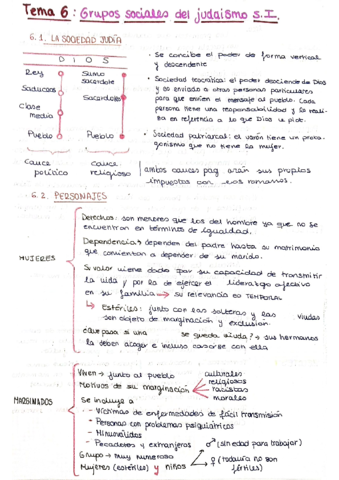 Tema 6: Grupos sociales del judaísmo s.I.
6.1. LA SOCIEDAD JUDÍA
D I O S
Rey
Sumo sacerdote
Saduceos
Sacerdotes
Clase media
Pueblo
Pueblo
Cauce político
Cauce religioso
· Se concibe el poder de forma vertical
y descendente
· Sociedad teocrática: el poder desciende de Dios
y es enviado a otras personas particulares
para que envíen el mensaje al pueblo. Cada
persona tiene una responsabilidad y la reali-
za en referencia a lo que Dios le pide.
· Sociedad patriarcal: el varón tiene un prota-
gonismo que no tiene la mujer.
ambos cauces pag arán sus propios
impuestos con los romanos.
6.2. PERSONAJES
MUJERES
Derechos: son menores que los del hombre ya que no se
encuentran en términos de igualdad.
Dependencia: dependen del padre hasta su matrimonio
que comienzan a depender de su marido.
Si valor viene dado por su capacidad de transmitir
la vida y por la de ejercer el liderazgo afectivo
en su familia → su relevancia es TEMPORAL
↳ Estériles: junto con las solteras y las viudas
son objeto de marginación y exclusión.
¿Qué pasa si una se queda viuda? → sus hermanos
la deben acoger e incluso casarse con ella
MARGINADOS
Viven → junto al pueblo
Motivos de su marginación
culturales
religiosos
racistas
morales
Se incluye a
- Víctimas de enfermedades de fácil transmisión
- Personas con problemas psiquiátricos
- Minusválidos
- Pecadores y extranjeros
Grupo → muy numeroso
Mujeres (estériles) y niños
♂ (sin edad para trabajar)
♀ (todavía no son
fértiles)